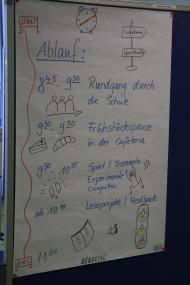 START
Cafeteria
Sporthalle
Ablauf:
8⁴⁵ - 9³⁰ Rundgang durch
die Schule
9³⁰ - 9⁵⁰ Frühstückspause
in der Cafeteria
9⁵⁰ - 10⁵⁵ Sport / Trommeln
Experimente
Computer
ab 10⁵⁵ Leseprojekt / Feedback
ZIEL
11³⁰